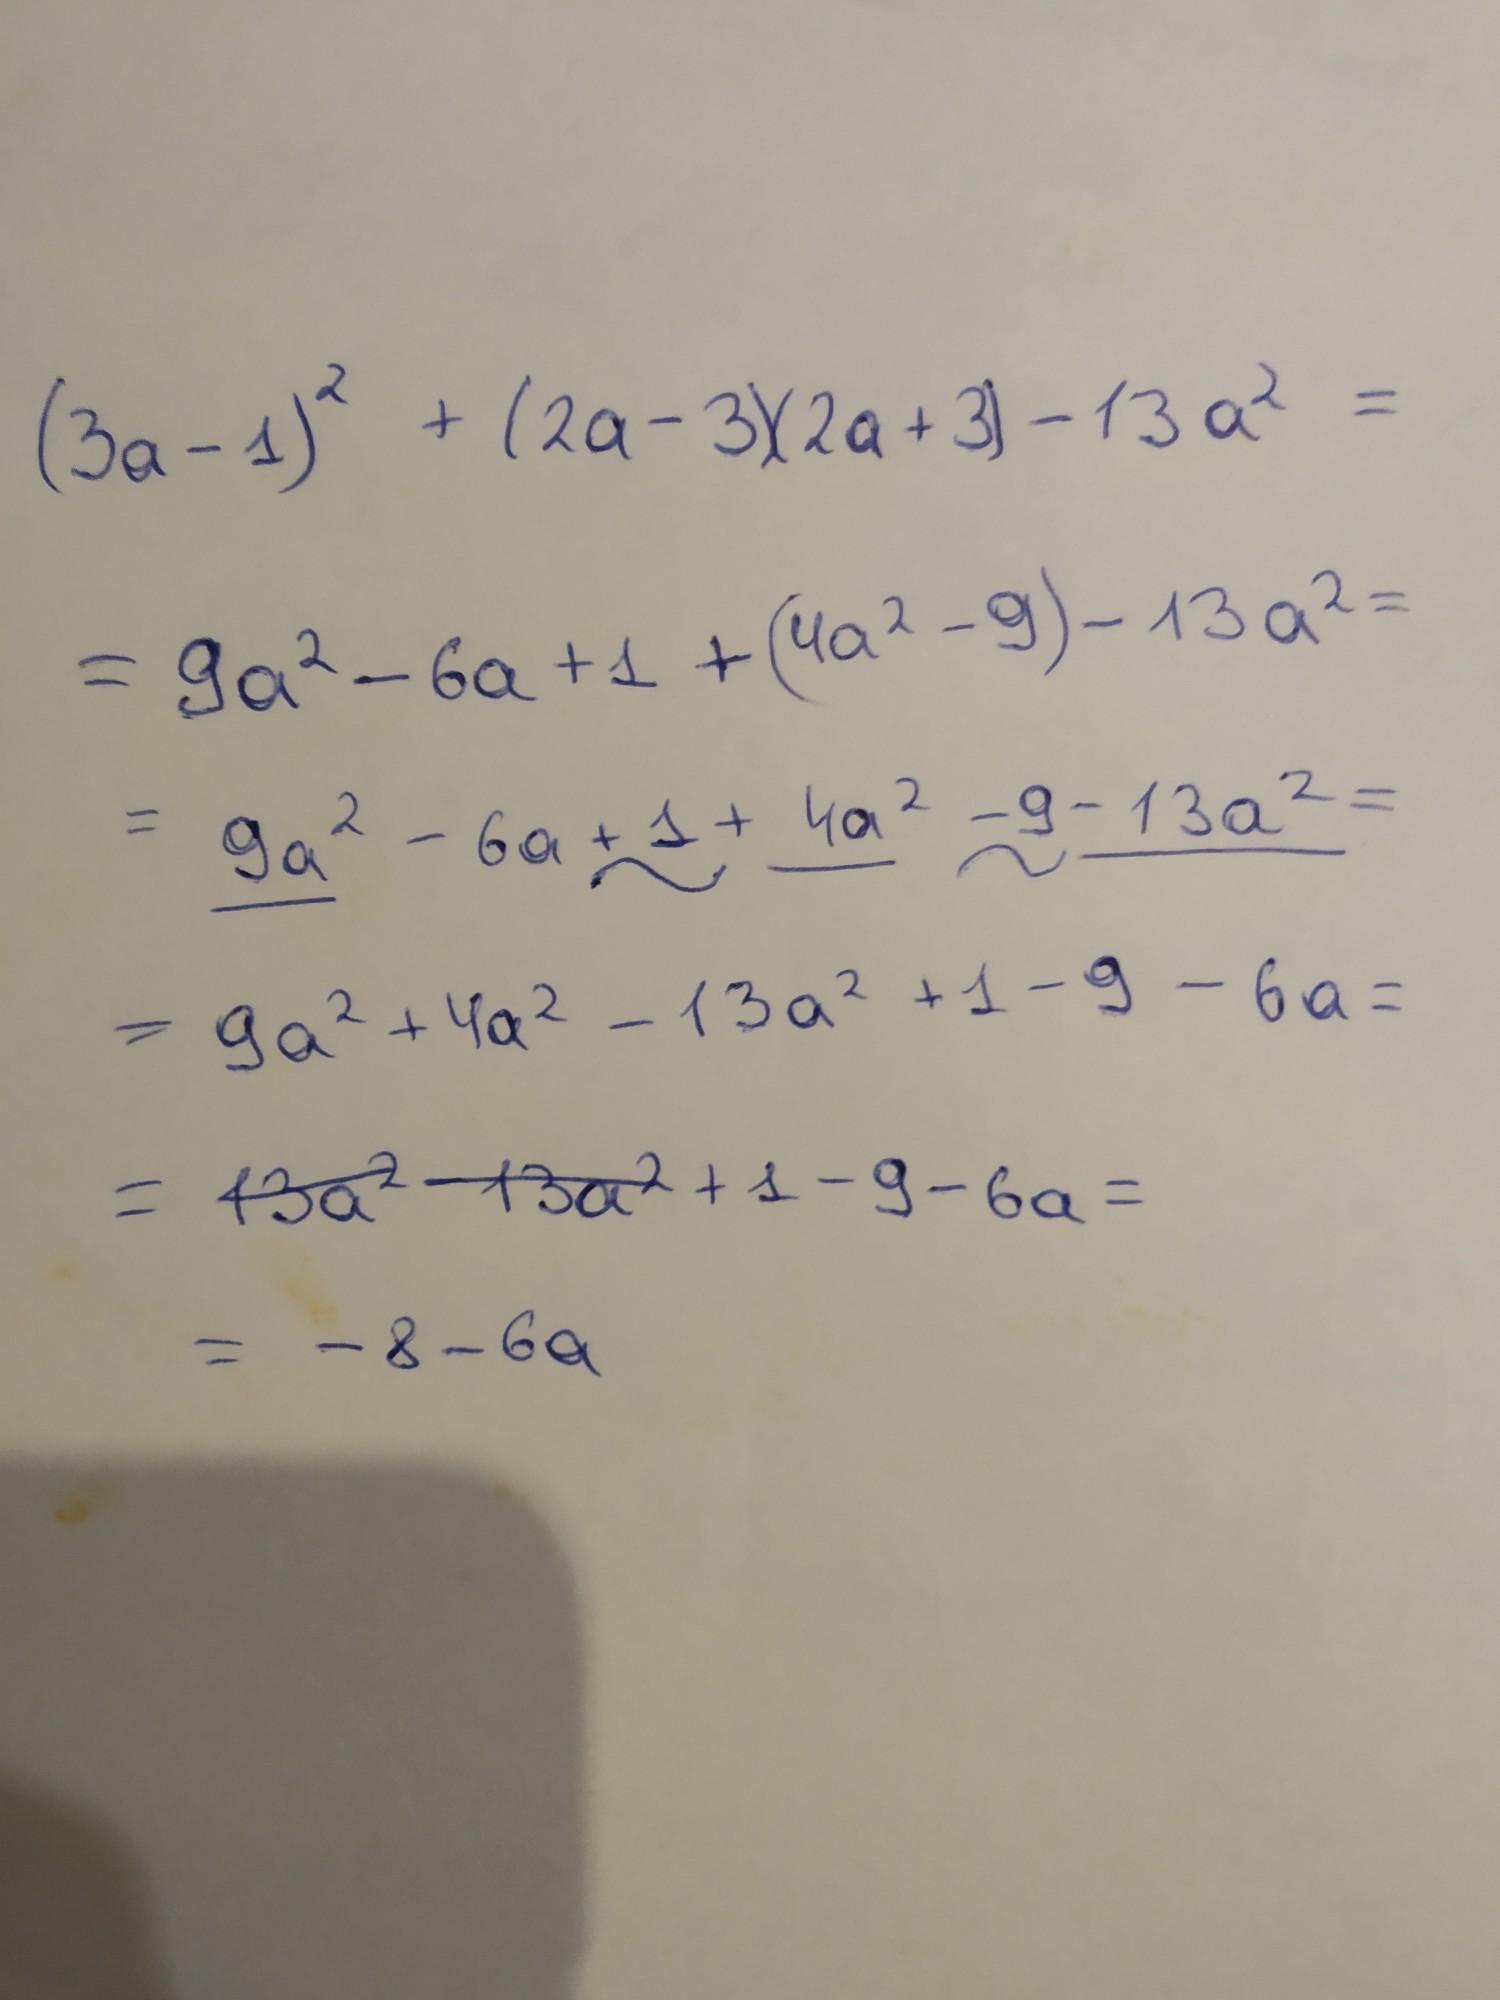 (3a - 1)² + (2a - 3)(2a + 3) - 13a² =
= 9a² - 6a + 1 + (4a² - 9) - 13a² =
= 9a² - 6a + 1 + 4a² - 9 - 13a² =
= 9a² + 4a² - 13a² + 1 - 9 - 6a =
= 13a² - 13a² + 1 - 9 - 6a =
= - 8 - 6a